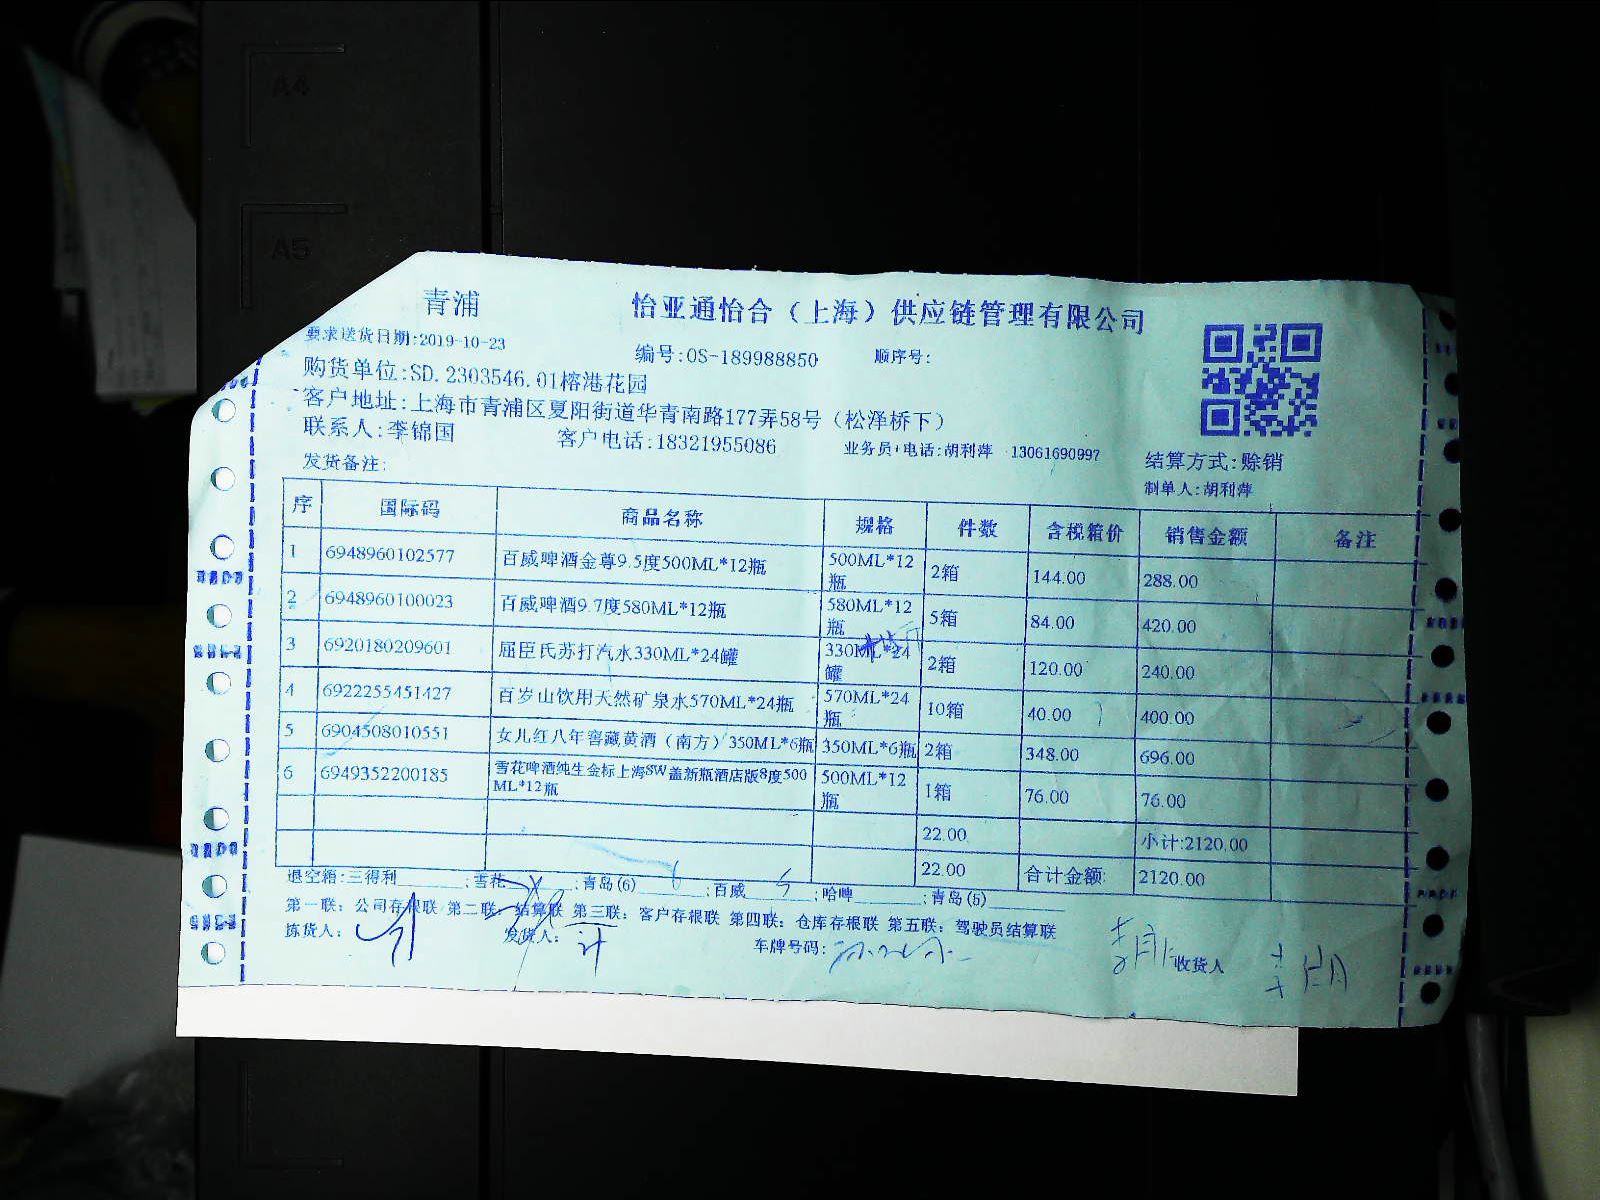 A4
A5
青浦
怡亚通怡合（上海）供应链管理有限公司
要求送货日期:2019-10-23
编号:OS-189988850 顺序号:
购货单位:SD.2303546.01榕港花园
客户地址:上海市青浦区夏阳街道华青南路177弄58号（松泽桥下）
联系人:李锦国 客户电话:18321955086 业务员+电话:胡利萍 13061690997 结算方式:赊销
发货备注: 制单人:胡利萍
序 国际码 商品名称 规格 件数 含税箱价 销售金额 备注
1 6948960102577 百威啤酒金尊9.5度500ML*12瓶 500ML*12瓶 2箱 144.00 288.00
2 6948960100023 百威啤酒9.7度580ML*12瓶 580ML*12瓶 5箱 84.00 420.00
3 6920180209601 屈臣氏苏打汽水330ML*24罐 330ML*24罐 2箱 120.00 240.00
4 6922255451427 百岁山饮用天然矿泉水570ML*24瓶 570ML*24瓶 10箱 40.00 400.00
5 6904508010551 女儿红八年窖藏黄酒（南方）350ML*6瓶 350ML*6瓶 2箱 348.00 696.00
6 6949352200185 雪花啤酒纯生金标上海SW盖新瓶酒店版8度500ML*12瓶 500ML*12瓶 1箱 76.00 76.00
22.00 小计:2120.00
22.00 合计金额: 2120.00
退空箱:三得利 ;雪花 ;青岛(6) ;百威 5 ;哈啤 ;青岛(5)
第一联：公司存根联 第二联：结算联 第三联：客户存根联 第四联：仓库存根联 第五联：驾驶员结算联
拣货人： 发货人： 车牌号码: 收货人